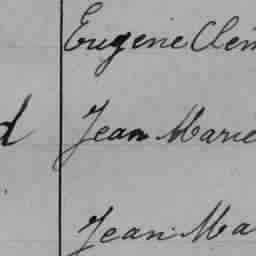 Eugène Clém
d Jean Marie
Jean Ma